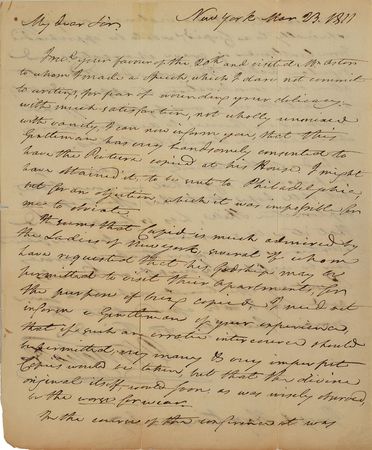 New York Mar 23. 1811
My Dear Sir,
I rec'd your favour of the 20th and visited Mr Astor
to whom I made a Speech, which I dare not commit
to writing, for fear of wounding your delicacy.
with much satisfaction, not wholly unmixed
with vanity, I can now inform you, that this
Gentleman has very handsomely consented to
have the Picture copied at his House. I might
have obtained it, to be sent to Philadelphia,
but for an objection, which it was impossible for
me to obviate.
It seems that Cupid is much admired by
the Ladies of New York, several of whom
have requested that his Godship may be
permitted to visit their Apartments, for
the purpose of being copied. I need not
inform a Gentleman of your experience,
that if such an erratic intercourse should
be permitted, very many & very imperfect
Copies would be taken, but that the divine
original itself would soon, as was wisely observed,
be the worse for wear.
In the course of this conference it was